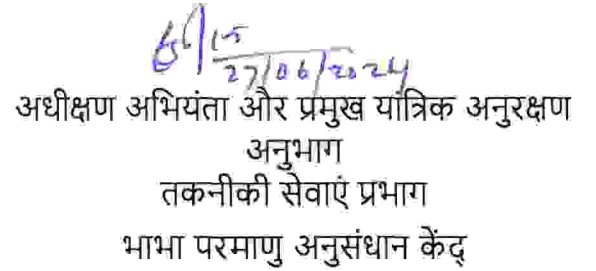 27/06/2024
अधीक्षण अभियंता और प्रमुख यांत्रिक अनुरक्षण
अनुभाग
तकनीकी सेवाएं प्रभाग
भाभा परमाणु अनुसंधान केंद्